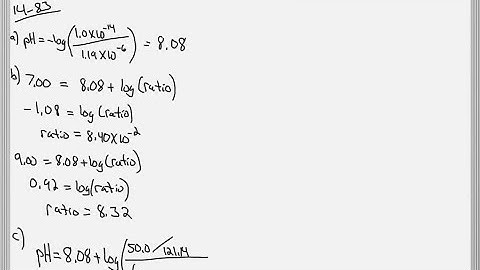 14-83
a) pH = -log(1.0×10⁻¹⁴/1.19×10⁻⁶) = 8.08
b) 7.00 = 8.08 + log(ratio)
-1.08 = log(ratio)
ratio = 8.40×10⁻²
9.00 = 8.08 + log(ratio)
0.92 = log(ratio)
ratio = 8.32
c) pH = 8.08 + log(50.0/121.14